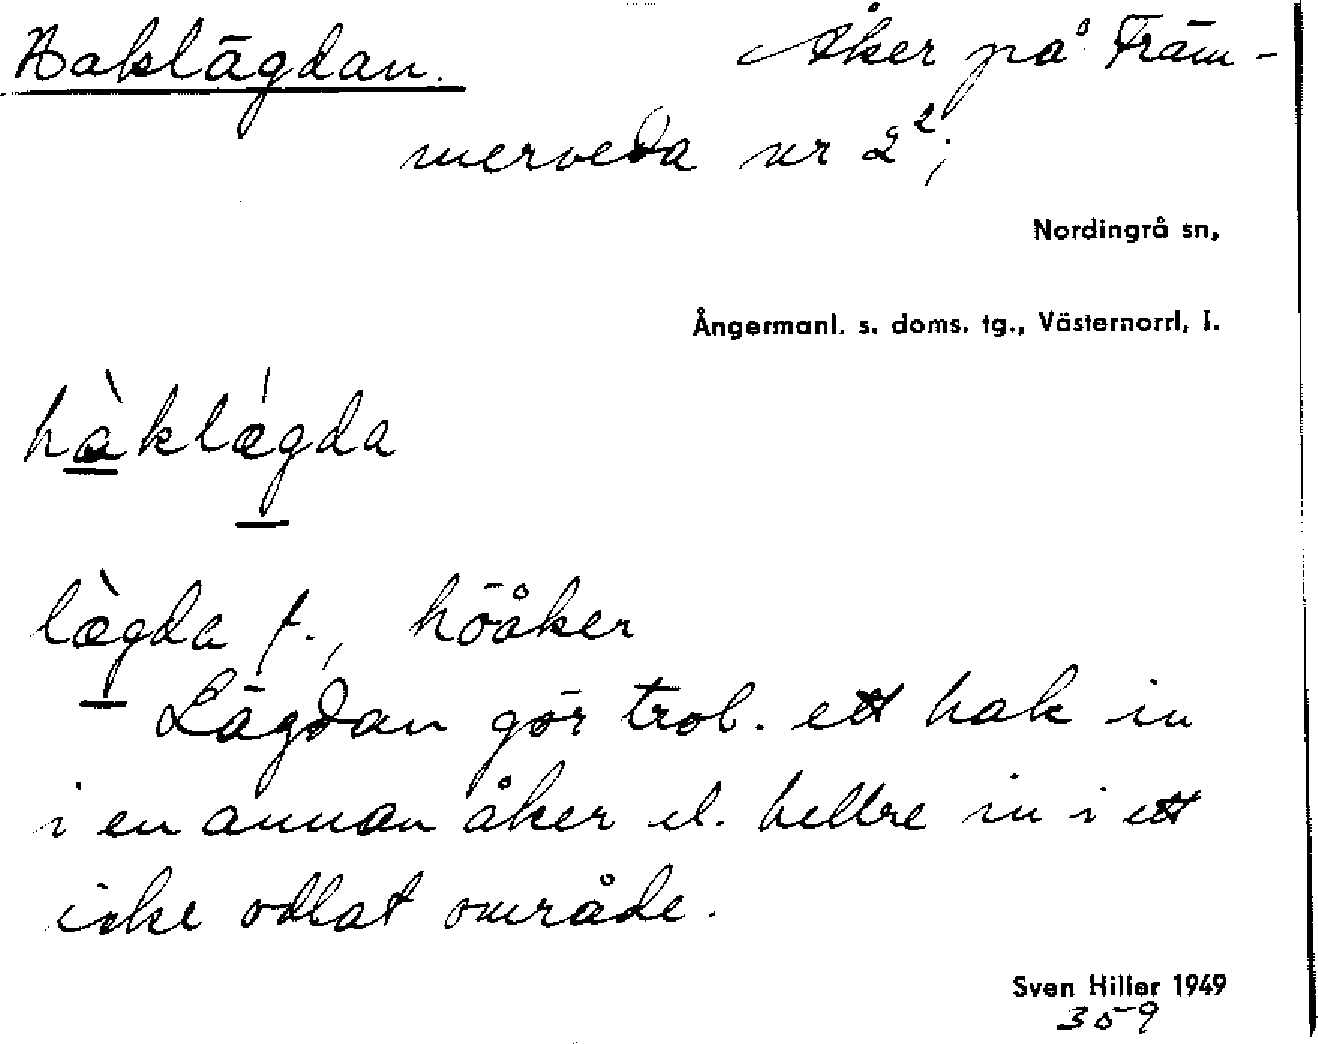 Haklägdan. Åker på Främ-
merveda nr 2²;
Nordingrå sn,
Ångermanl. s. doms. tg., Västernorrl. l.
hàklǽgda
lǽ̀gda f., höåker
Lägdan gör trol. ett hak in
i en annan åker el. hellre in i ett
icke odlat område.
Sven Hiller 1949
359